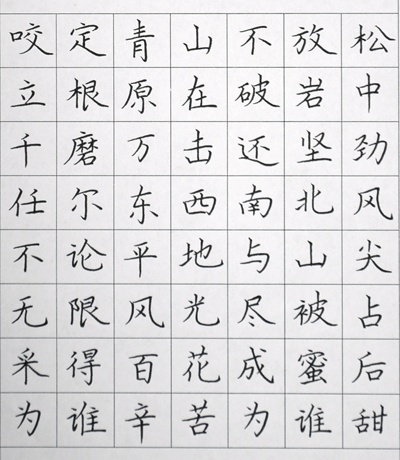 咬定青山不放松
立根原在破岩中
千磨万击还坚劲
任尔东西南北风
不论平地与山尖
无限风光尽被占
采得百花成蜜后
为谁辛苦为谁甜